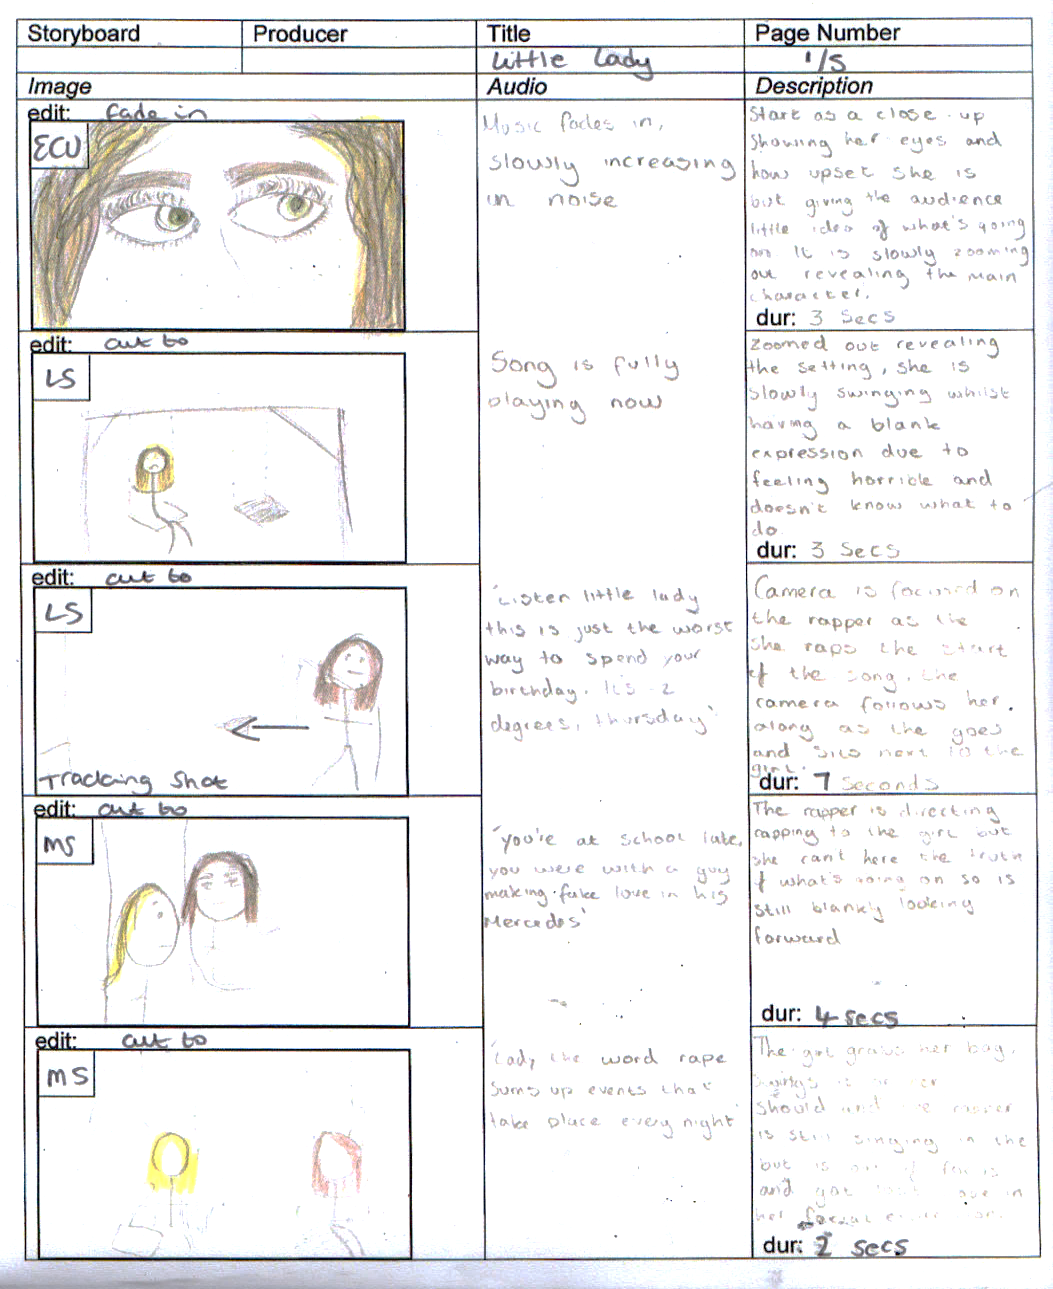 Storyboard
Producer
Title
Page Number
Little Lady
1/5
Image
Audio
Description
edit: fade in
ECU
Music fades in,
slowly increasing
in noise
Start as a close-up
showing her eyes and
how upset she is
but giving the audience
little idea of what's going
on. It is slowly zooming
out revealing the main
character.
dur: 3 Secs
edit: cut to
LS
Song is fully
playing now
zoomed out revealing
the setting, she is
slowly swinging whilst
having a blank
expression due to
feeling horrible and
doesn't know what to
do.
dur: 3 Secs
edit: cut to
LS
Tracking Shot
'Listen little lady
this is just the worst
way to spend your
birthday. It's -2
degrees, thursday'
Camera is focused on
the rapper as
she raps the start
of the song. the
camera follows her.
along as she goes
and sits next to the
girl.
dur: 7 Seconds
edit: cut to
MS
'you're at school late,
you were with a guy
making fake love in his
Mercedes'
The rapper is directing
rapping to the girl but
she can't here the truth
of what's going on so is
still blankly looking
forward
dur: 4 secs
edit: cut to
MS
'Lady the word rape
sums up events that
take place every night'
The girl grabs her bag,
swings it
should and rapper
is still singing in the
but is out of focus
and got in
her
dur: 2 secs